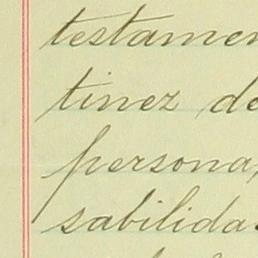 testamen
tinez de
persona,
sabilida